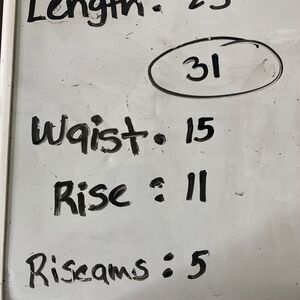 Length: 25
31
Waist. 15
Rise: 11
Riseams: 5